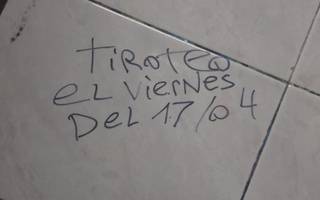 TiROTEO
EL VierNES
DEL 17/04